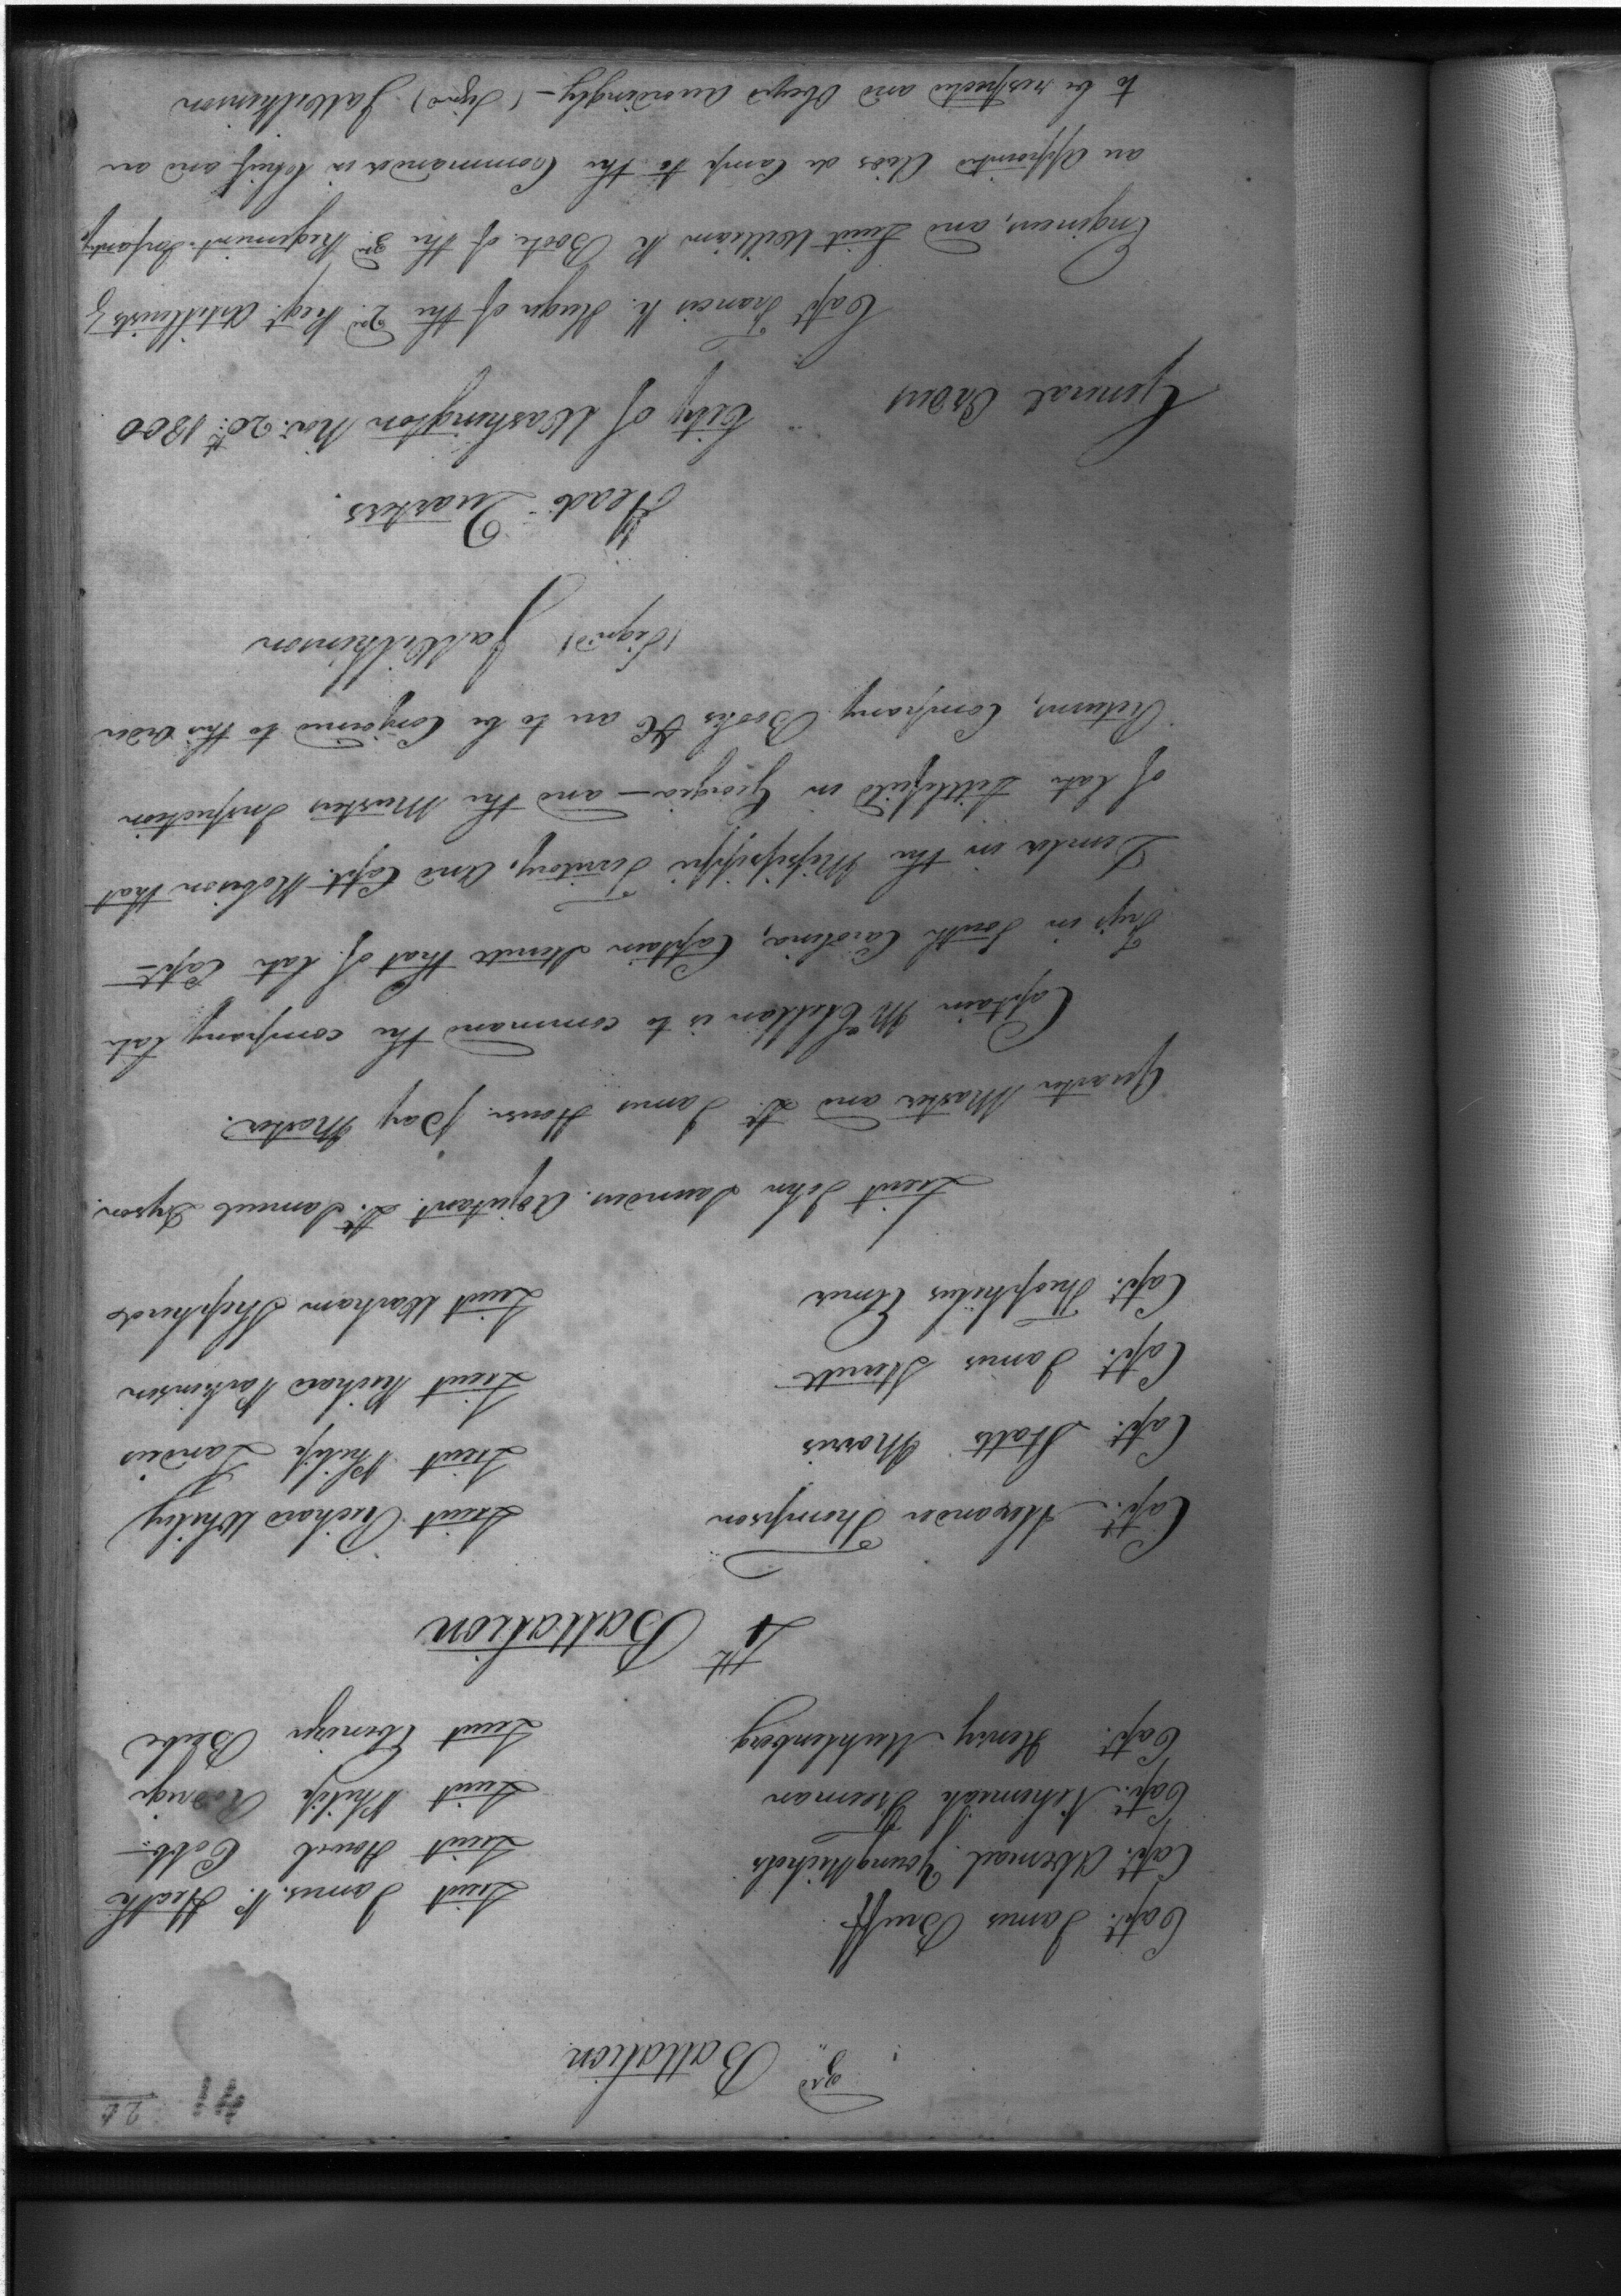 41
26
3rd Battalion
Capt. James Bruff Lieut James. P. Heath
Capt. Abimael Young Nichols Lieut Howel Cobb
Capt. Nehemiah Freeman Lieut Philip Rodrige
Capt. Henry Muhlenberg Lieut Ebenezer Beebe
4th Battalion
Capt. Alexander Thompson Lieut Richard Whiley
Capt. Staats Morris Lieut Philip Landais
Capt. James Sterrett Lieut Michael Parkinson
Capt. Theophilus Elmer Lieut Warham Shepherd
Lieut John Saunders. Adjutant Lt. Samuel Dyson.
Quarter Master and Lt. James House. Pay Master.
Captain McClellan is to command the company late
Frys in South Carolina, Captain Sterrett that of late Capt
Demler in the Missisippi Territory. And Capt. Robeson that
of late Littlefield in Georgia — and the Musters Inspection
Returns, Company Books &c are to be Conformed to this order
(Signd) JaWilkinson
Head Quarters.
General Orders City of Washington Nov. 20th 1800
Capt Francis K. Huger of the 2nd Regt. Artillerists &
Engineers, and Lieut William R Boote of the 3rd Regiment Infantry
are appointed Aids de Camp to the Commander in Chief and are
to be respected and Obeyed accordingly — (Signd) JaWilkinson